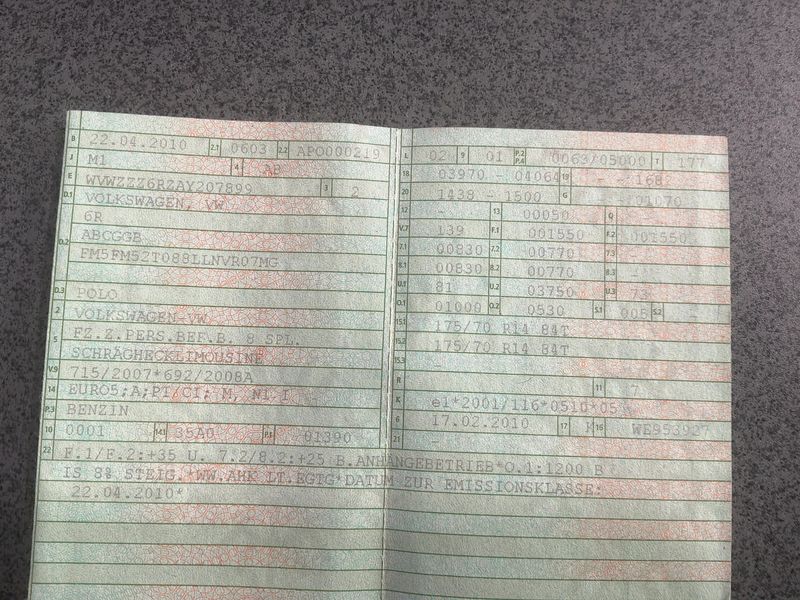 B 22.04.2010 2.1 0603 2.2 APO000219
J M1 4 AB
E WVWZZZ6RZAY207899 3 2
D.1 VOLKSWAGEN, VW
6R
D.2 ABCGGB
FM5FM52T088LLNVR07MG
D.3 POLO
2 VOLKSWAGEN-VW
5 FZ.Z.PERS.BEF.B. 8 SPL.
SCHRÄGHECKLIMOUSINE
V.9 715/2007*692/2008A
14 EURO5;A;PI/CI; M, N1 I
P.3 BENZIN
10 0001 14.1 35A0 P.1 01390
L 02 9 01 P.2 P.4 0063/05000 T 177
18 03970 - 04064 19 - - 168
20 1438 - 1500 G 01070
12 - 13 00050 Q -
V.7 139 F.1 001550 F.2 001550
7.1 00830 7.2 00770 7.3 -
8.1 00830 8.2 00770 8.3 -
U.1 81 U.2 03750 U.3 73
O.1 01000 O.2 0530 S.1 005 S.2 -
15.1 175/70 R14 84T
15.2 175/70 R14 84T
15.3 -
R 11 7
K e1*2001/116*0510*05
6 17.02.2010 17 K 16 WE953927
21 -
22 F.1/F.2:+35 U. 7.2/8.2:+25 B.ANHÄNGEBETRIEB*O.1:1200 B
IS 8% STEIG.*WW.AHK LT.EGTG*DATUM ZUR EMISSIONSKLASSE:
22.04.2010*